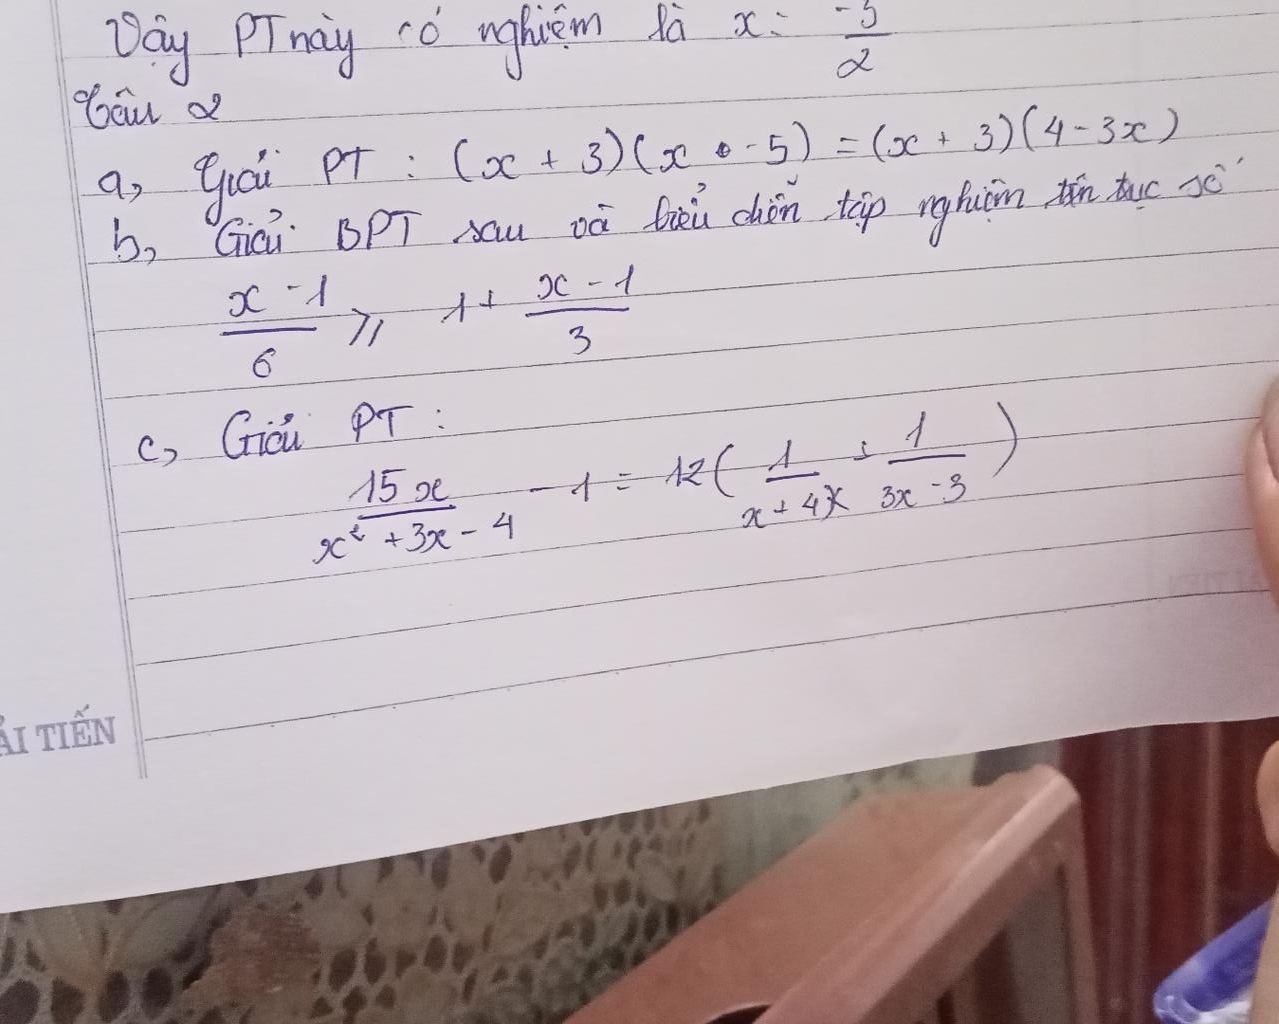 Vậy PT này có nghiệm là x = -5/2
Câu 2
a, Giải PT : (x + 3)(x - 5) = (x + 3)(4 - 3x)
b, Giải BPT sau và biểu diễn tập nghiệm trên trục số
x - 1/6 ⩾ 1 + x - 1/3
c, Giải PT :
15x/x² + 3x - 4 - 1 = 12(1/x + 4 + 1/3x - 3)
ẢI TIẾN